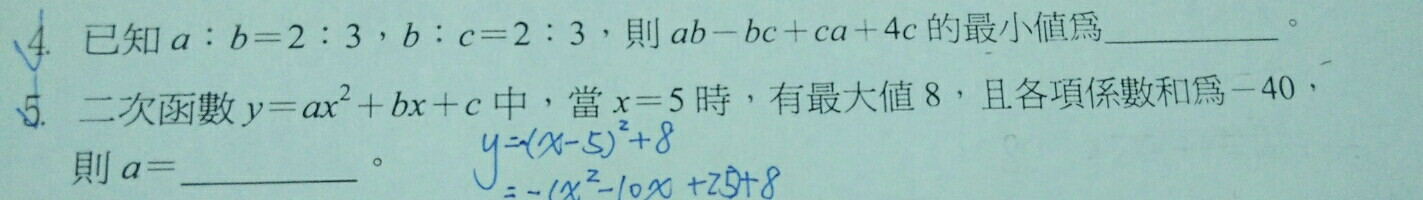 4. 已知 a：b=2：3，b：c=2：3，則 ab-bc+ca+4c 的最小值為__________。
5. 二次函數 y=ax²+bx+c 中，當 x=5 時，有最大值 8，且各項係數和為-40，
則 a=__________。
y=-(x-5)²+8
=-(x²-10x+25)+8